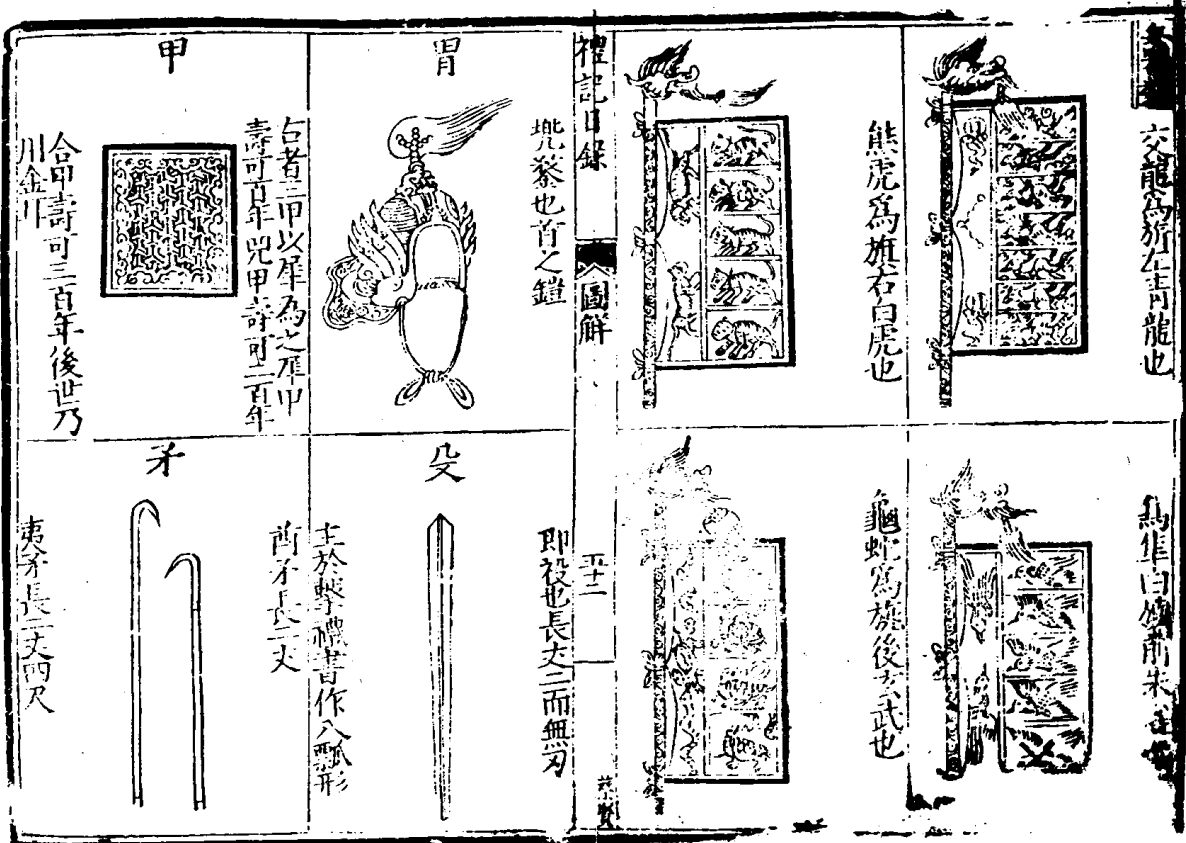 交龍爲旂左青龍也
熊虎爲旗右白虎也
鳥隼曰旟前朱
龜蛇爲旐後玄武也
禮記目錄
圖解
五十二
冑
兠鍪也首之鎧
甲
古者三甲以犀為之犀甲
壽可百年兕甲壽可二百年
合甲壽可三百年後世乃
用金
殳
即祋也長丈二而無刃
主於擊禮書作八觚形
矛
酋矛長二丈
夷矛長二丈四尺